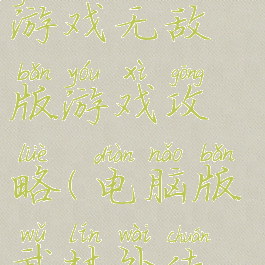 游戏无敌
bǎn yóu xì gōng
版游戏攻
lüè diàn nǎo bǎn
略(电脑版
wǔ lín wài chuán
武林外传